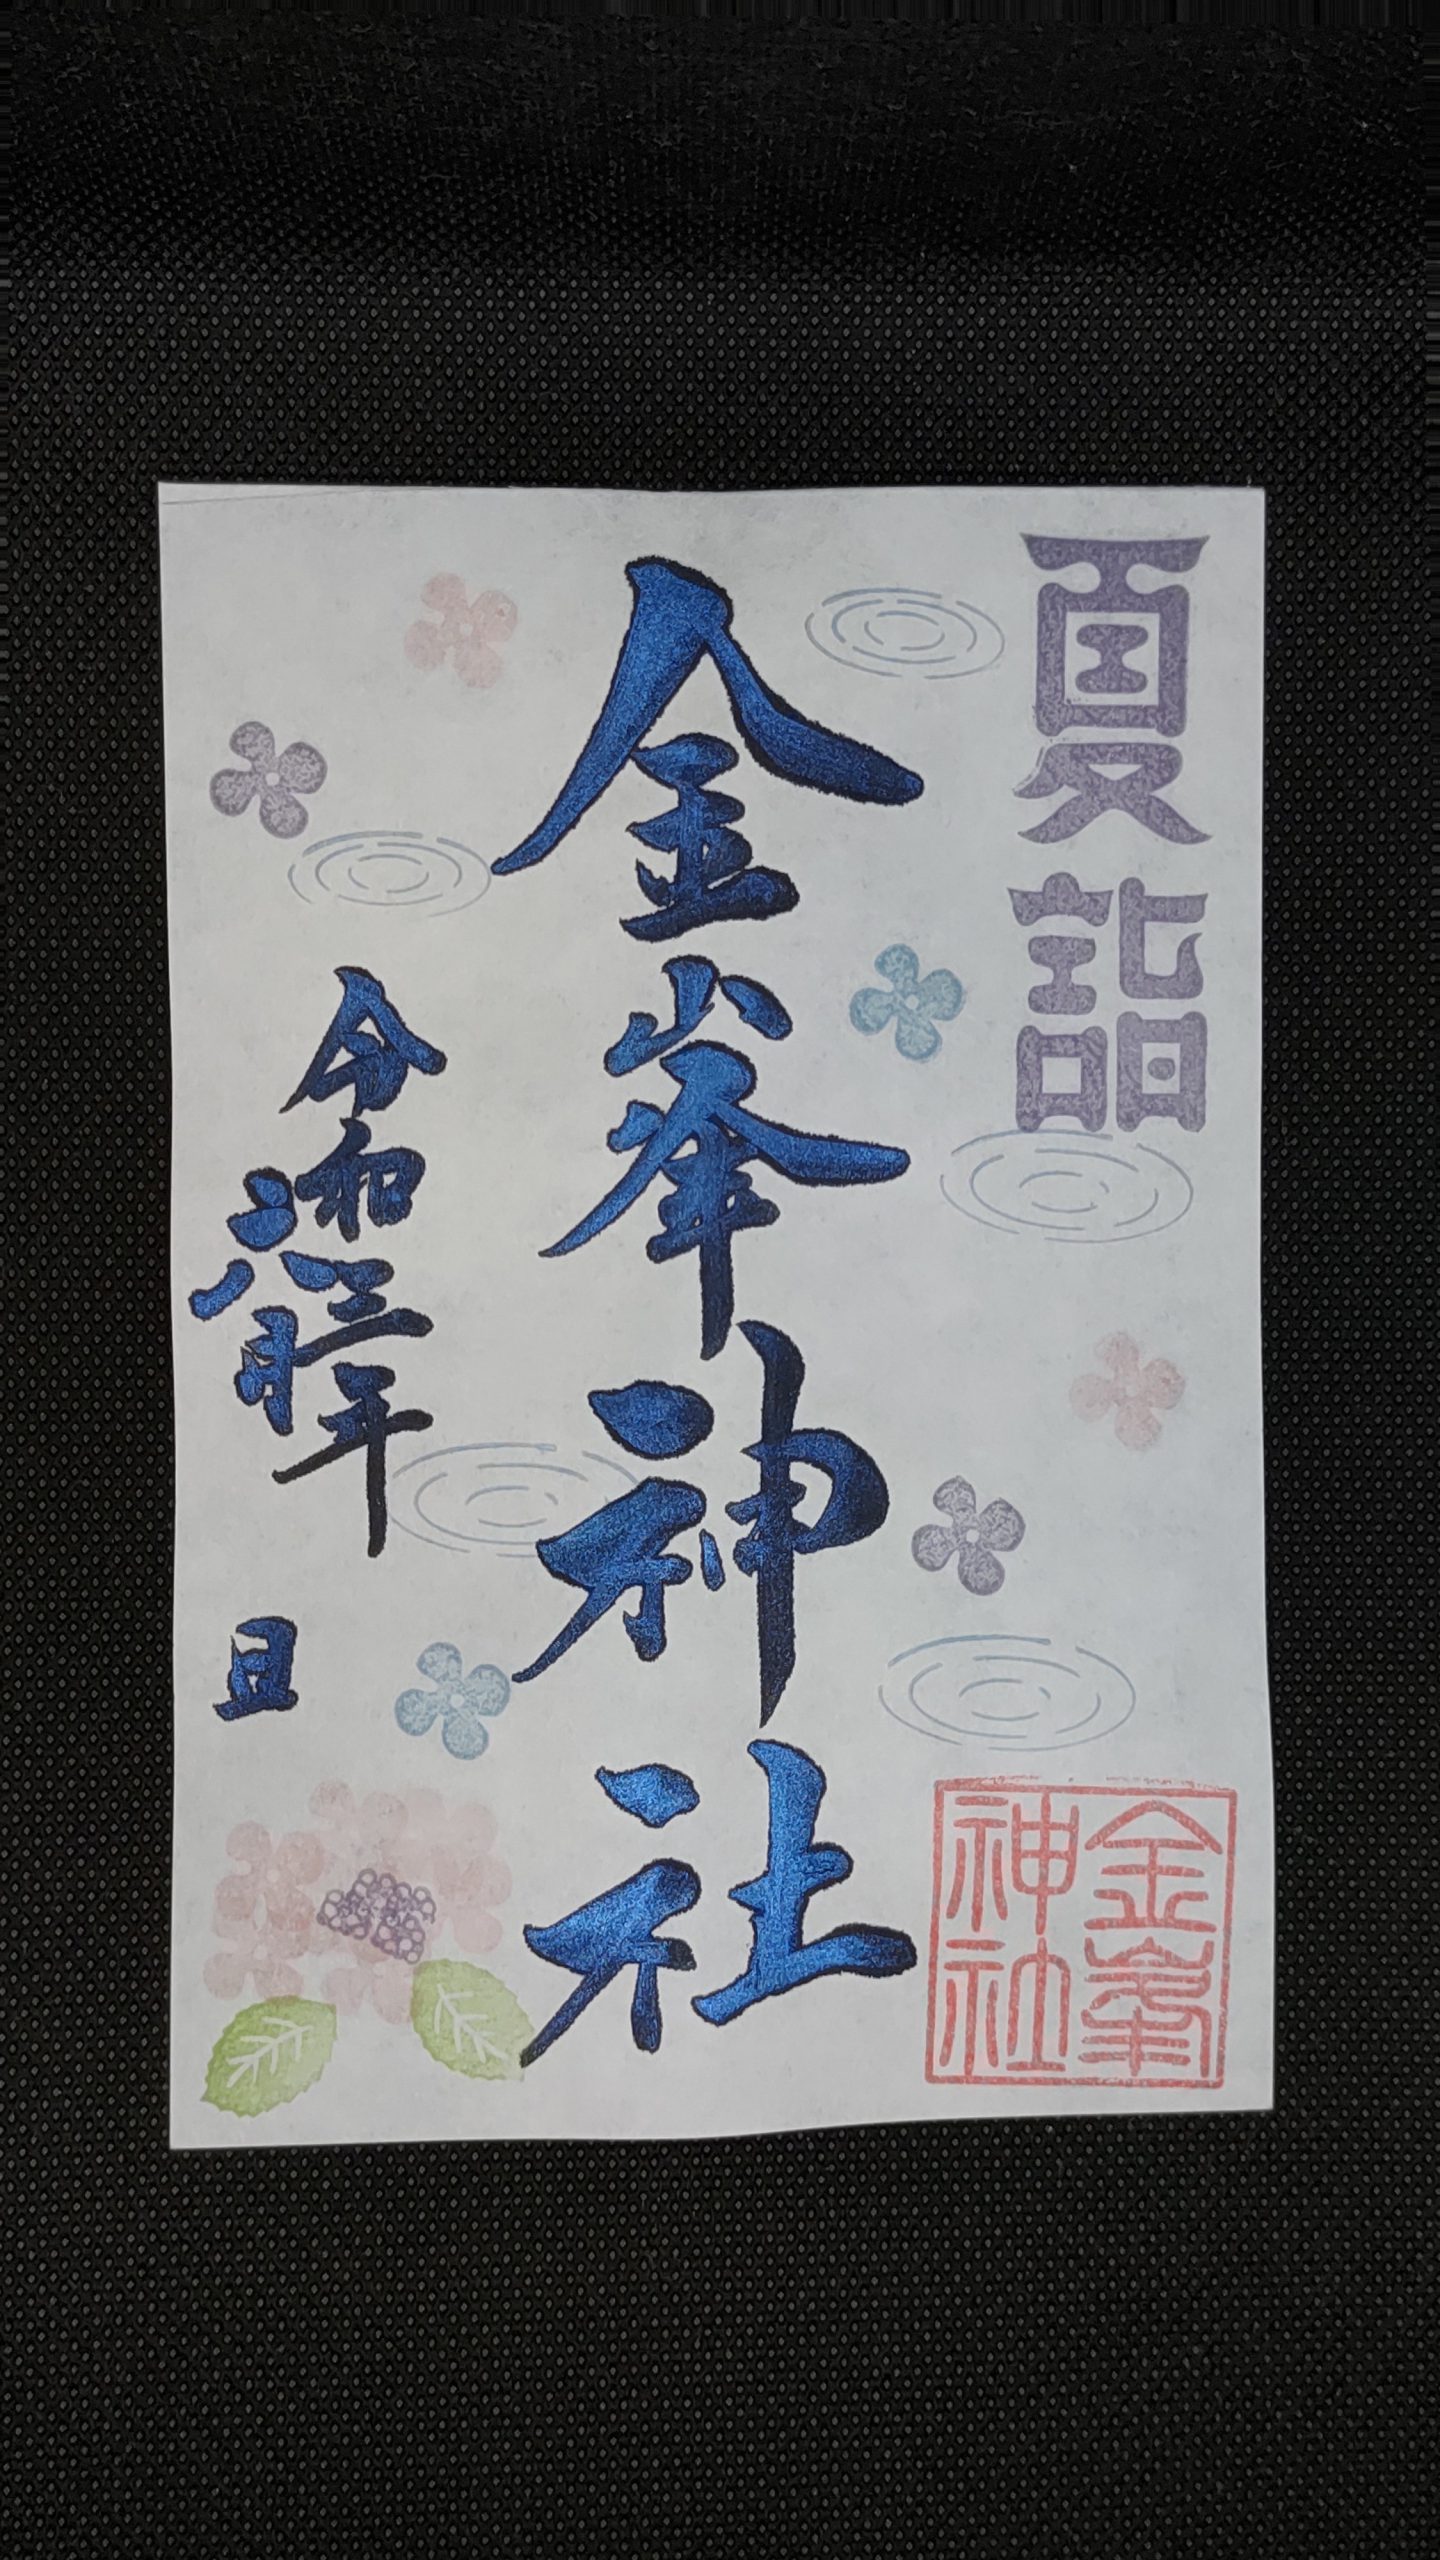 夏詣
金峯神社
令和三年
六月
日
金峯
神社